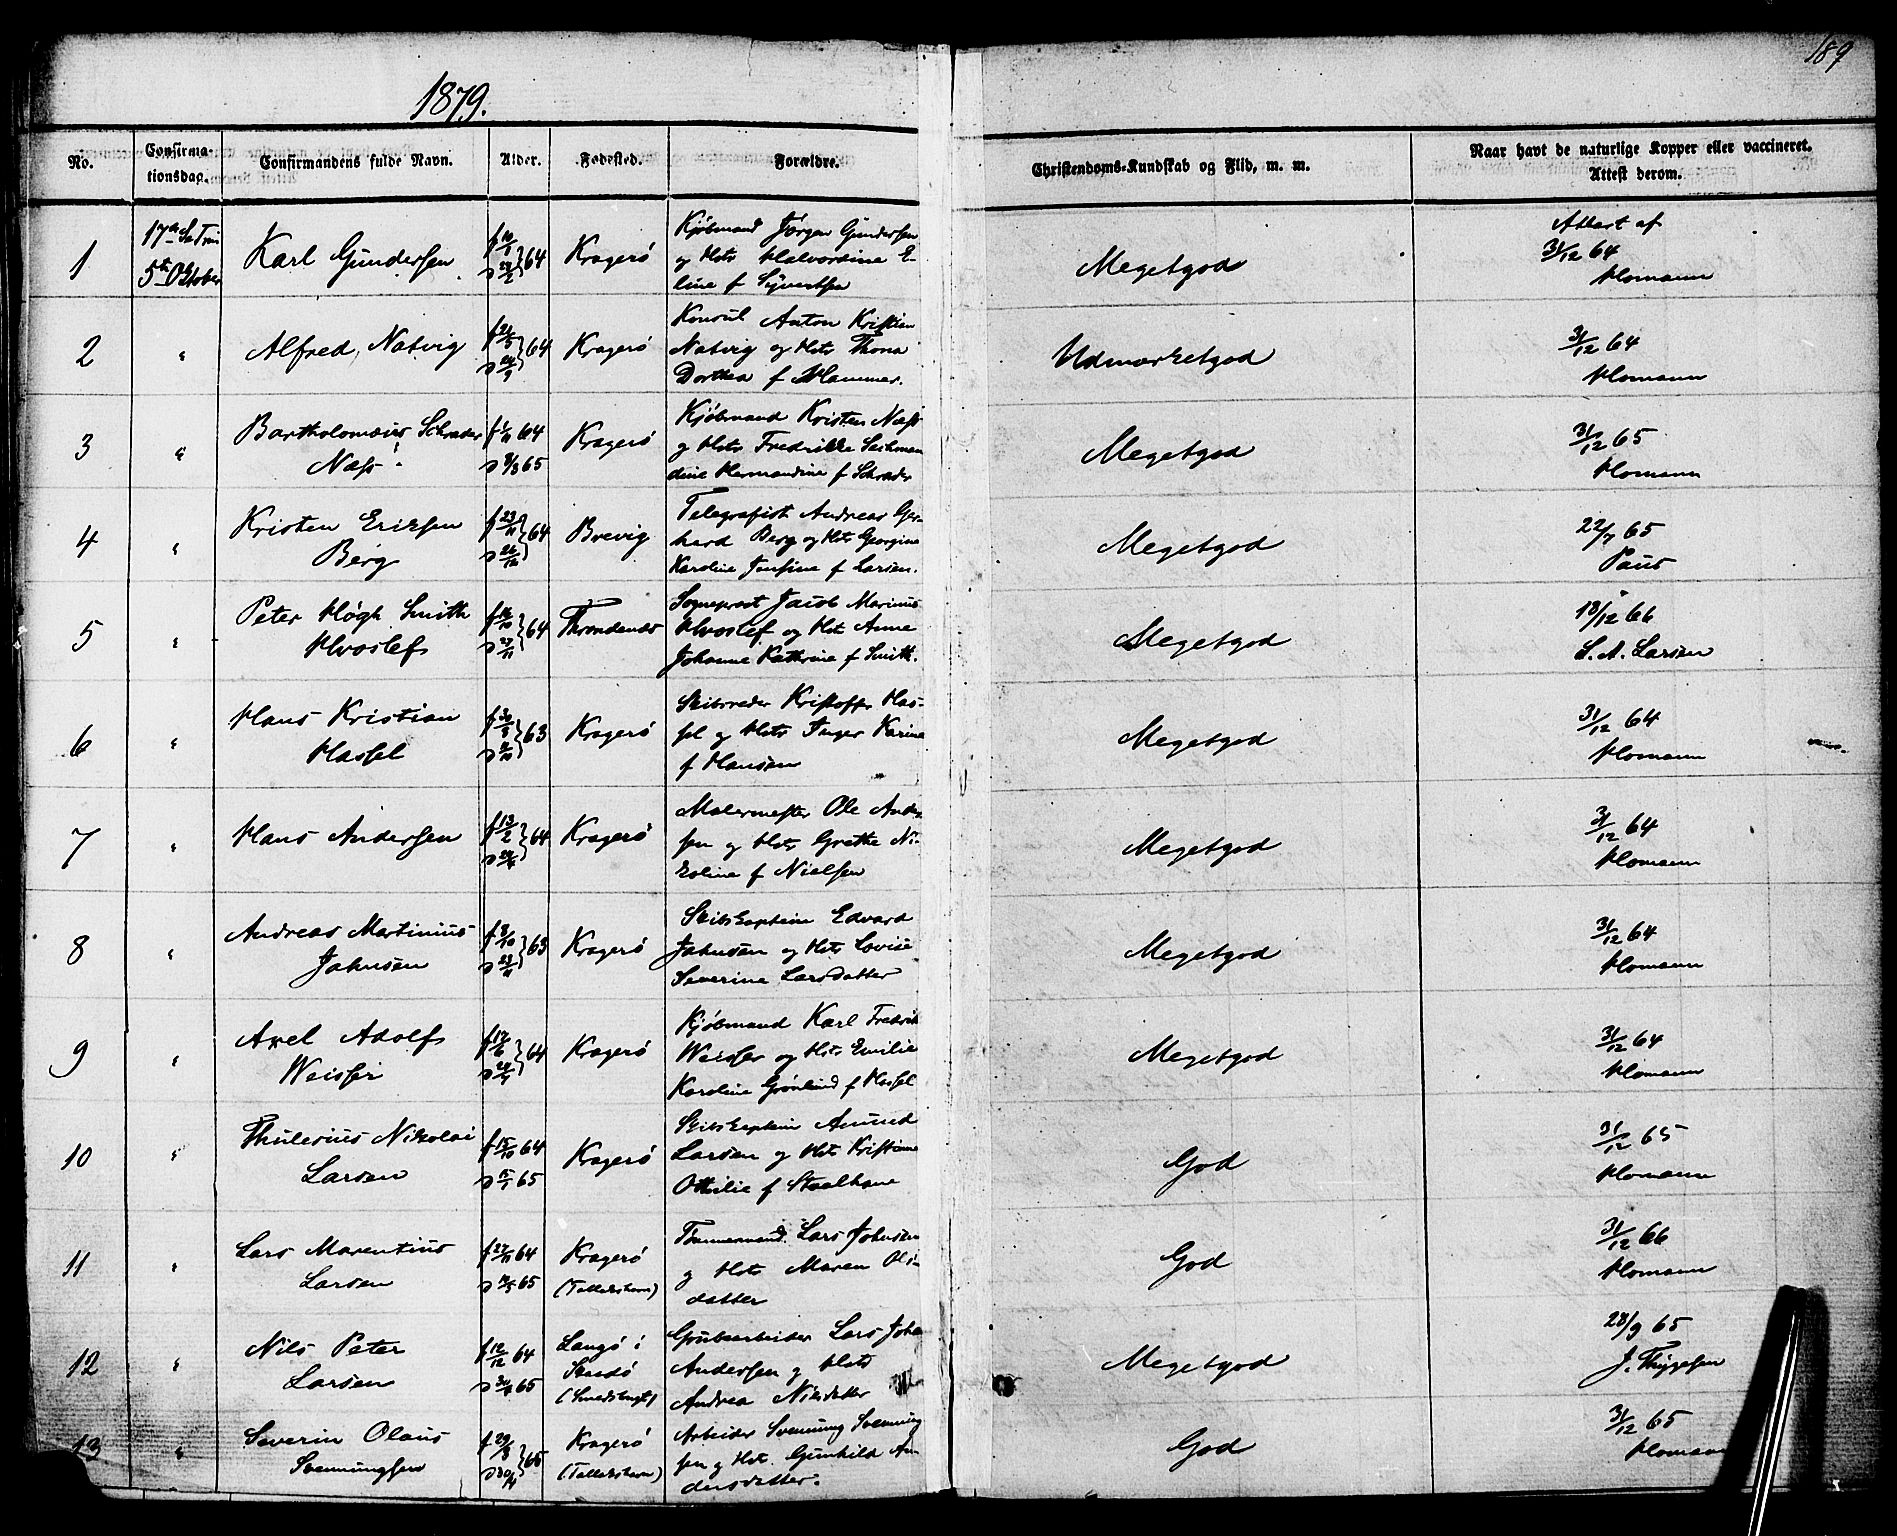 189
1879.
No.
Confirma-
tionsdag.
Confirmandens fulde Navn.
Alder.
Fødested.
Forældre.
Christendoms-Kundskab og Flid, m. m.
Naar havt de naturlige Kopper eller vaccineret.
Attest derom.
1
17de S e Trin
5te Oktober
Karl Gundersen
64
Kragerø
Kjøbmand Jørgen Gundersen
og Hst Halvordine E-
line f Syvertsen
Megetgod
Attest af
31/12 64
Homann
2
"
Alfred Natvig
64
Kragerø
Konsul Anton Kristian
Natvig og Hst Thona
Dorthea f Hammer.
Udmærketgod
31/12 64
Homann
3
"
Bartholomæus Schrader
Næss
f 1/11 64
65
Kragerø
Kjøbmand Kristen Næss
og Hst Fredrikke
dine Hermandine f Schrader
Megetgod
31/12 65
Homann
4
"
Kristen Eriksen
Berg
f 23/11
d 26/12 } 64
Brevig
Telegrafist Andreas Ger-
hard Berg og Hst Georgine
Karoline Jensine f Larsen.
Megetgod
22/7 65
Paus
5
"
Peter Høgh Smith
Hvoslef
f 16/10
d 27/11 } 64
Throndenæs
Sogneprest Jacob Marinus
Hvoslef og Hst Anne
Johanne Kathrine f Smith.
Megetgod
18/12 66
S. A. Larsen
6
"
Hans Kristian
Hassel
63
Kragerø
Skibsreder Kristoffer Has-
sel og Hst Inger Karine
f Hansen
Megetgod
31/12 64
Homann
7
"
Hans Andersen
f 13/2
64
Kragerø
Malermester Ole Ander
sen og Hst Grethe Ni-
koline f Nielsen
Megetgod
31/12 64
Homann
8
"
Andreas Martinius
Johnsen
63
Kragerø
Skibskaptein Edvard
Johnsen og Hst Lovise
Severine Larsdatter
Megetgod
31/12 64
Homann
9
"
Axel Adolf
Weisser
64
Kragerø
Kjøbmand Karl Fredrik
Weisser og Hst Emilie
Karoline Grønlund f Hassel
Megetgod
31/12 64
Homann
10
"
Thulesius Nikolai
Larsen
f 15/10 64
d 15/1 65
Kragerø
Skibskaptein Amund
Larsen og Hst Kristiane
Othilie f Staalhane
God
31/12 65
Homann
11
"
Lars Marentius
Larsen
f 27/11 64
65
Kragerø
(Tallakshavn)
Tømmermand Lars Johnsen
og Hst Maren Ols-
datter
God
31/12 66
Homann
12
"
Nils Peter
Larsen
f 12/12 64
65
Langø i
Skaadø
(Smedsbugt)
Grubearbeider Lars Johan
Andersen og Hst
Andrea Nilsdatter
Megetgod
28/9 65
J. Thygesen
13
"
Severin Olaus
Svenningsen
65
Kragerø
(Tallakshavn)
Arbeider Svenning Svenning
sen og Hst. Gunhild An-
dersdatter.
God
31/12 65
Homann